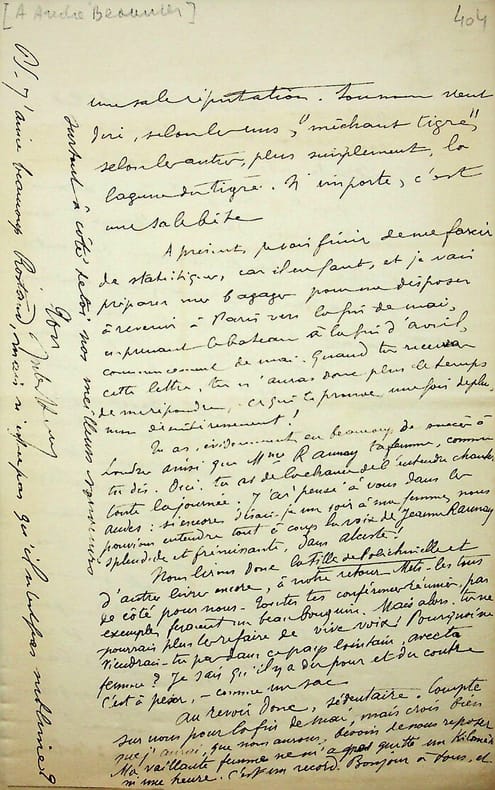 [A André Beaunier]
404
une sale réputation. Son nom veut
dire, selon les uns, "méchant tigre",
selon les autres, plus simplement, la
lagune du tigre. N'importe, c'est
une sale bête
A présent, je vais finir de me farcir
de statistiques, car il en faut, et je vais
préparer mes bagages pour me disposer
à revenir à Paris vers la fin de mai,
en prenant le bateau à la fin d'avril,
commencement de mai. Quand tu recevras
cette lettre, tu n'auras donc plus le temps
de me répondre, ce qui te prouve une fois de plus
mon désintéressement!
Tu as, évidemment eu beaucoup de succès à
Londres ainsi que Mme Raunay ta femme, comme
tu dis. Dieu! tu as de la chance de l'entendre chanter
toute la journée. J'ai pensé à vous dans les
Andes: si encore, disais-je un soir à ma femme, nous
pouvions entendre tout à coup la voix de Jeanne Raunay
splendide et frémissante, dans Alceste!
Nous lirons donc la fille de Polichinelle et
d'autres livres encore, à notre retour. Mets-les tous
de côté pour nous. Toutes tes conférences réunies, par
exemple feraient un beau bouquin. Mais alors, tu ne
pourrais plus les refaire de vive voix! Pourquoi ne
viendrais-tu pas dans ce pays lointain, avec ta
femme? Je sais qu'il y a du pour et du contre
C'est à peser, - comme un sac
Au revoir donc, sédentaire. Compte
sur nous pour la fin de mai, mais crois bien
que j'aurai, que nous aurons, besoin de nous reposer
Ma vaillante femme ne m'a pas quitté un kilomètre
ni une heure. C'est un record. Bonjour à vous, et
surtout à côté de toi nos meilleurs souvenirs
Ton
PS. J'aime beaucoup Rostand, mais n'est-ce pas qu'il n'est pas sublime?